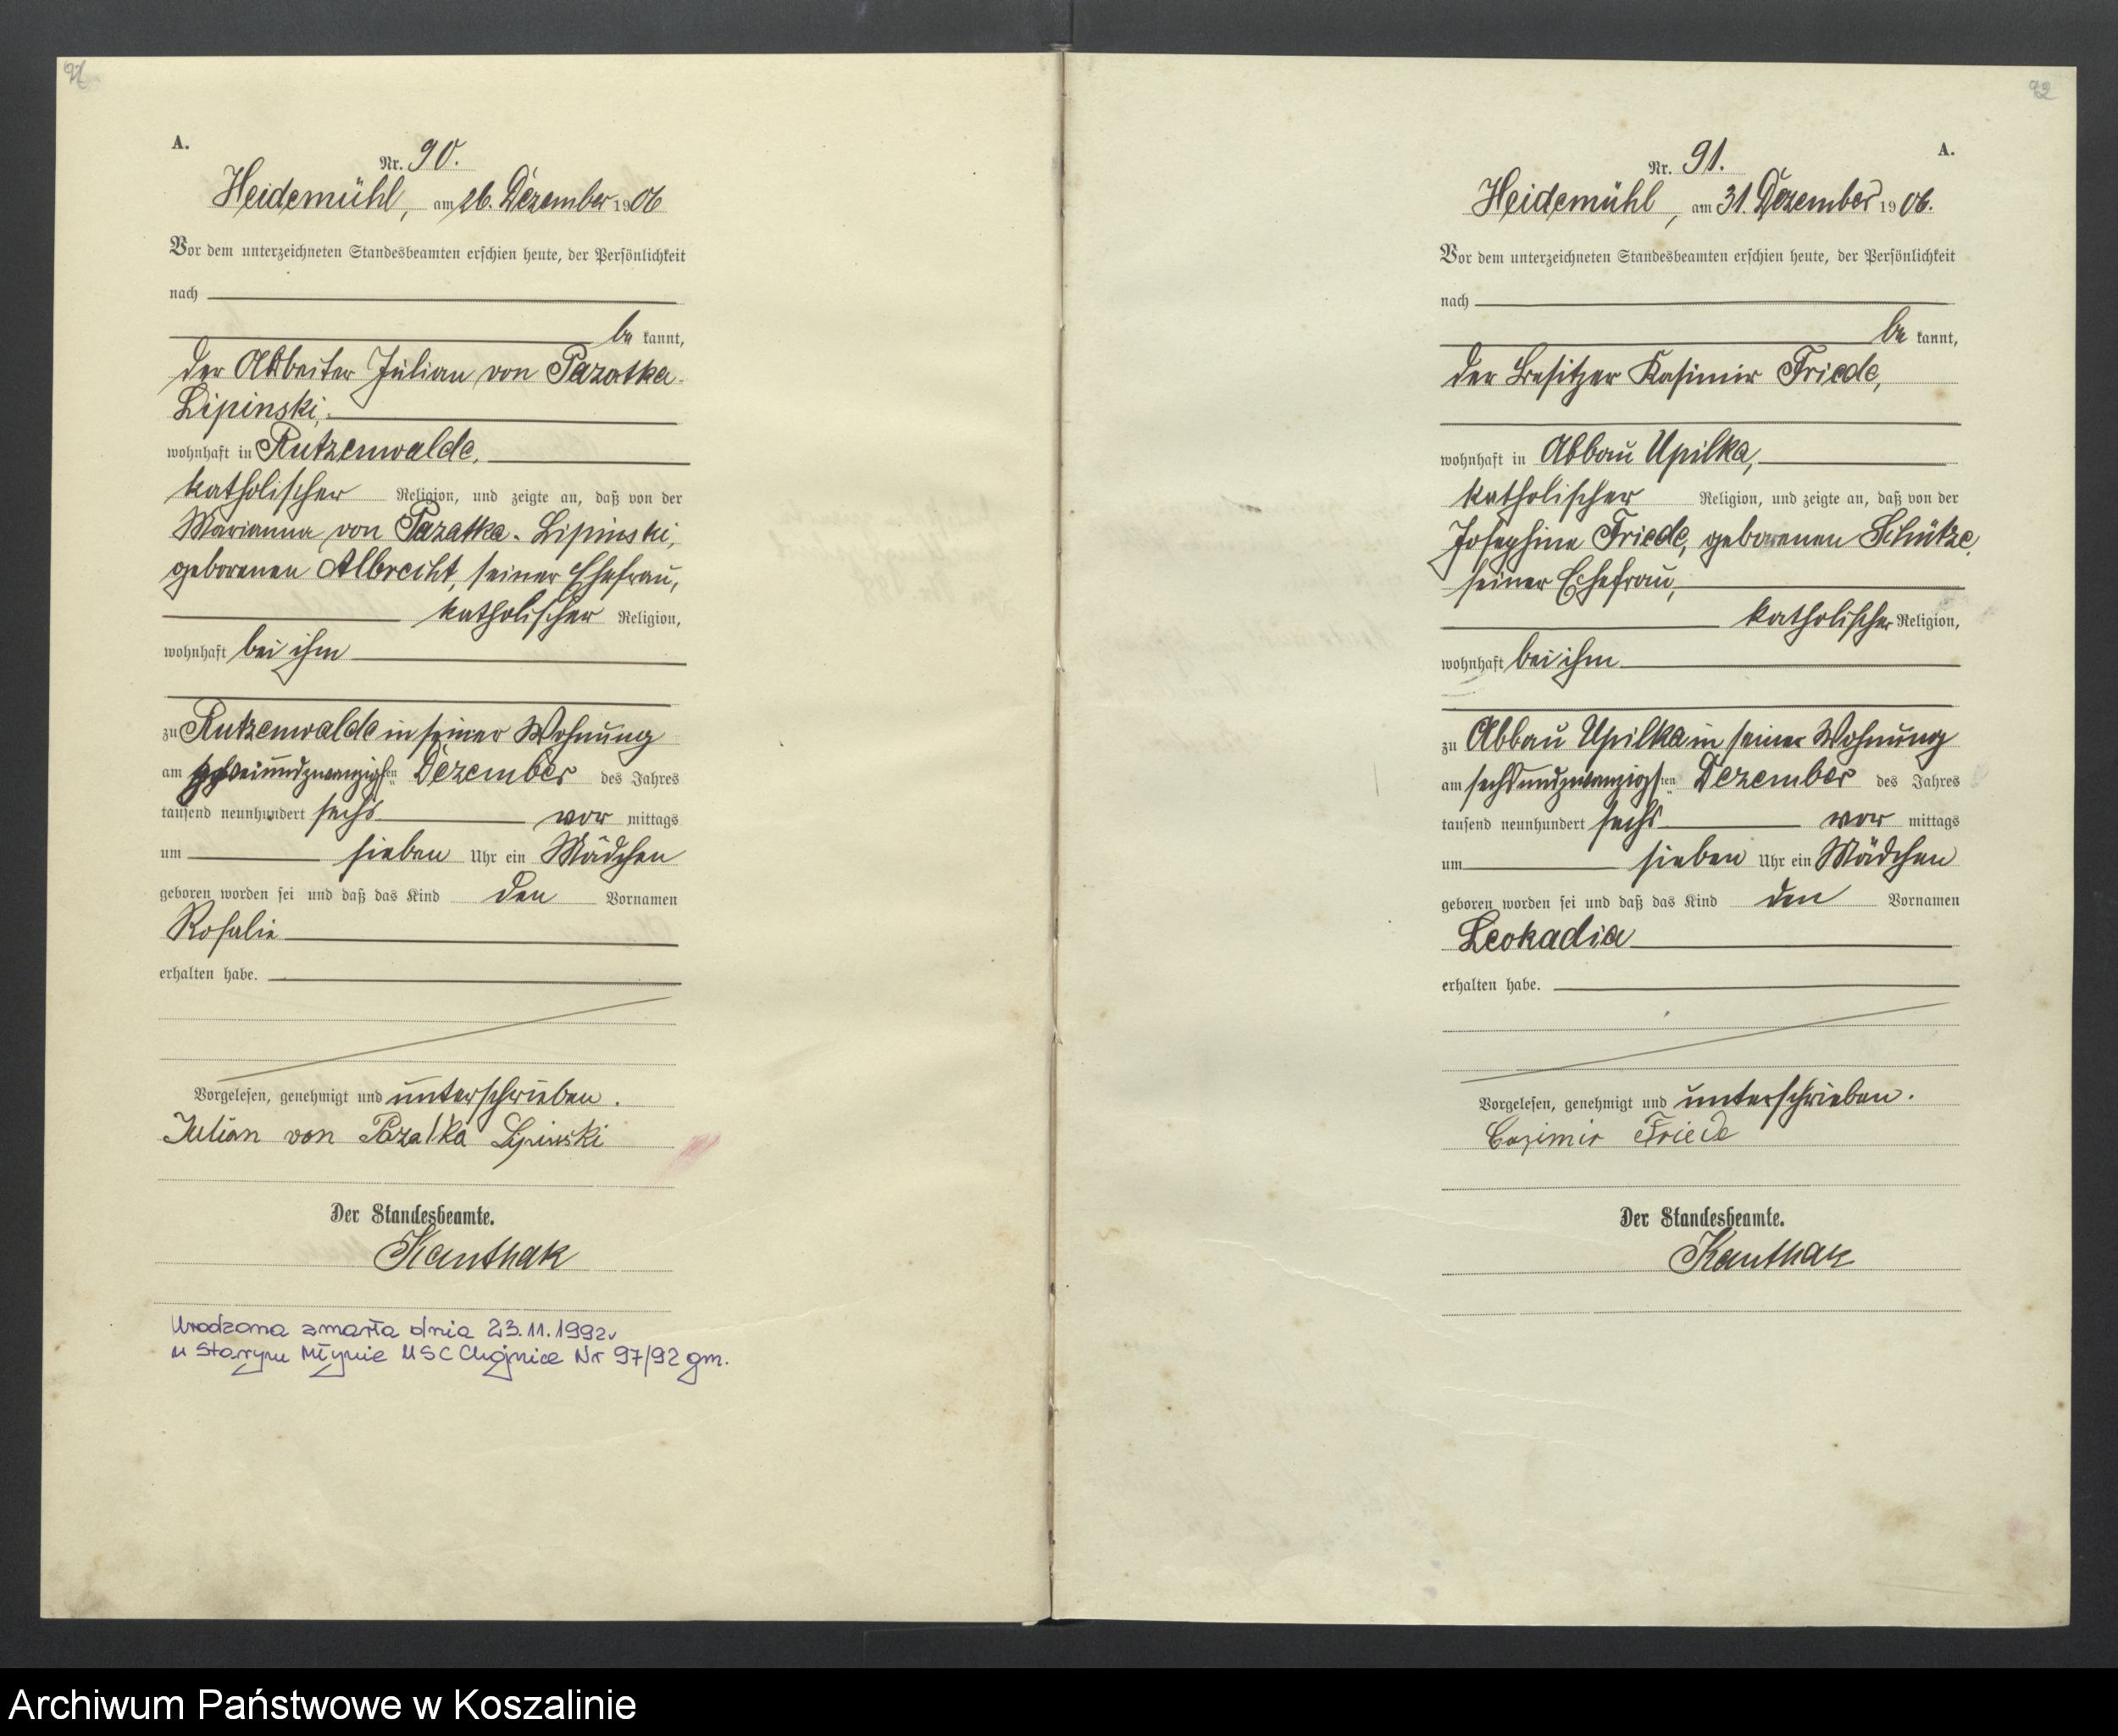 92
A.
Nr. 90.
Heidemühl, am 26. Dezember 1906
Vor dem unterzeichneten Standesbeamten erschien heute, der Persönlichkeit
nach
be kannt,
der Arbeiter Julian von Pazatka-
Lipinski,
wohnhaft in Rutzenwalde,
katholischer Religion, und zeigte an, daß von der
Marianna von Pazatka-Lipinski,
geborenen Albrecht, seiner Ehefrau,
katholischer Religion,
wohnhaft bei ihm
zu Rutzenwalde in seiner Wohnung
am zweiundzwanzigsten Dezember des Jahres
tausend neunhundert sechs vor mittags
um sieben Uhr ein Mädchen
geboren worden sei und daß das Kind den Vornamen
Rosalie
erhalten habe.
Vorgelesen, genehmigt und unterschrieben.
Julian von Pazatka Lipinski
Der Standesbeamte.
Kanthak
Urodzona zmarła dnia 23.11.1992r
w Starym Młynie USC Chojnice Nr 97/92 gm.
A.
Nr. 91.
Heidemühl, am 31. Dezember 1906.
Vor dem unterzeichneten Standesbeamten erschien heute, der Persönlichkeit
nach
be kannt,
der Besitzer Kasimir Friede,
wohnhaft in Abbau Upilka,
katholischer Religion, und zeigte an, daß von der
Josephine Friede, geborenen Schütze,
seiner Ehefrau,
katholischer Religion,
wohnhaft bei ihm
zu Abbau Upilka in seiner Wohnung
am sechsundzwanzigsten Dezember des Jahres
tausend neunhundert sechs vor mittags
um sieben Uhr ein Mädchen
geboren worden sei und daß das Kind den Vornamen
Leokadia
erhalten habe.
Vorgelesen, genehmigt und unterschrieben.
Cazimir Friede
Der Standesbeamte.
Kanthak
Archiwum Państwowe w Koszalinie